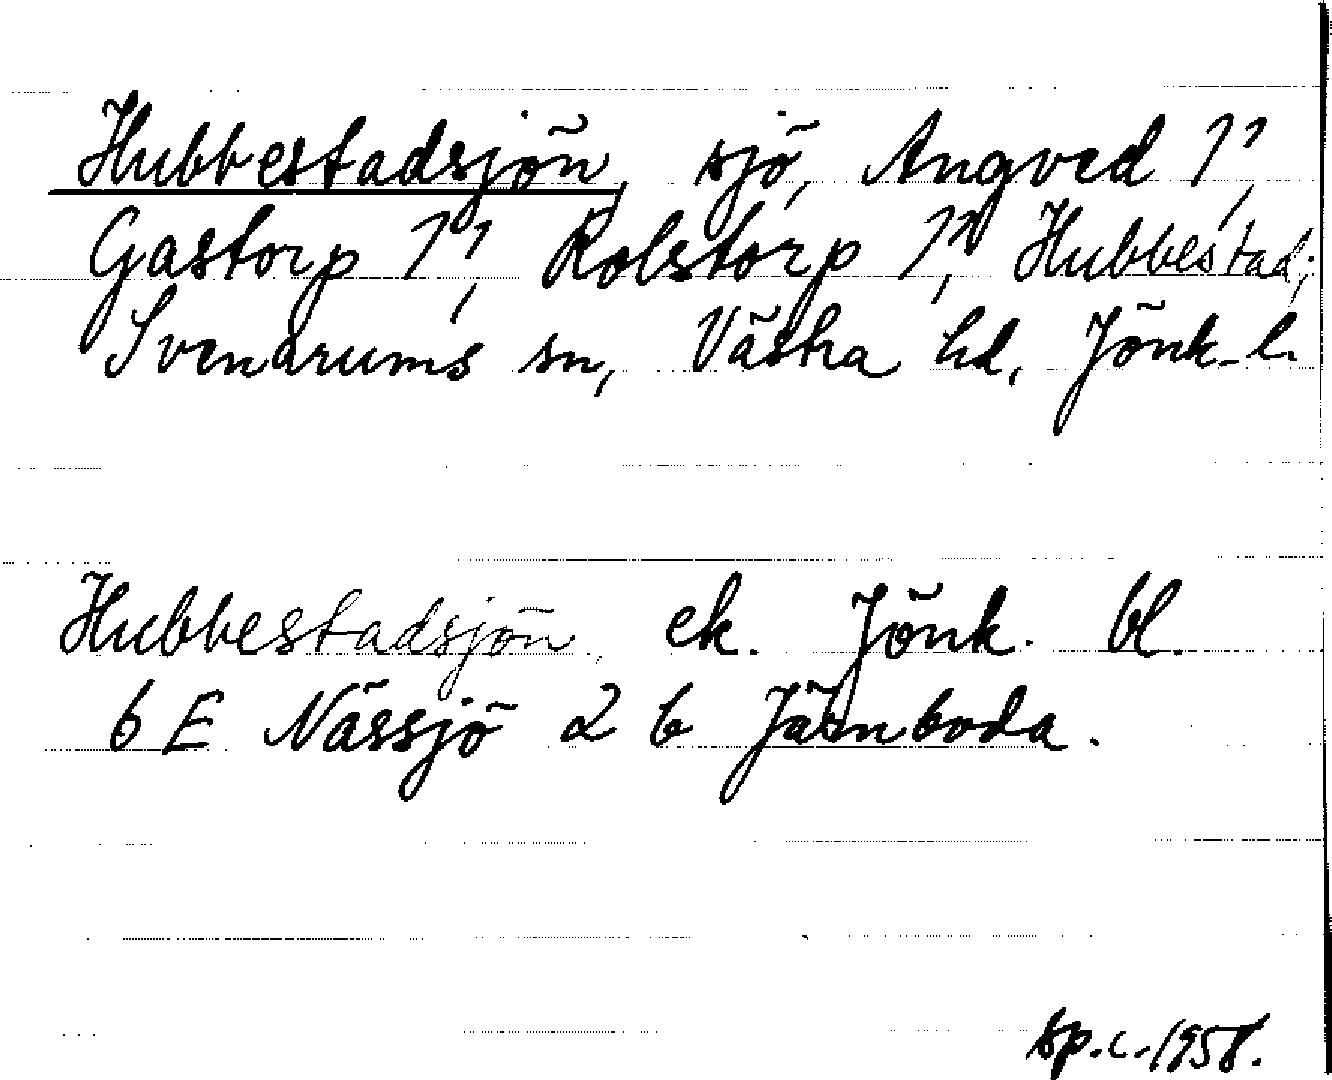 Hubbestadsjön, sjö, Angved 1¹,
Gastorp 1¹, Rolstorp 1¹, Hubbestad,
Svenarums sn, Västra hd, Jönk. l.
Hubbestadsjön, ek. Jönk. bl.
6 E Nässjö 2 b Järnboda.
Sp.c. 1958.